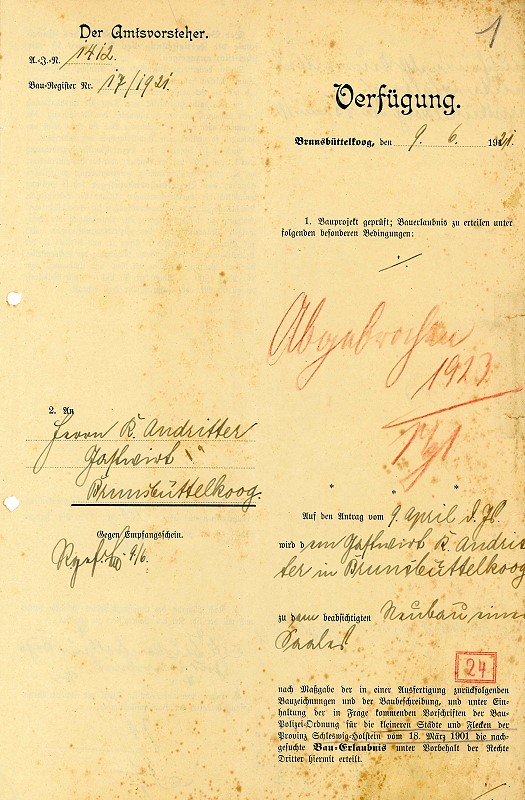 1
Der Amtsvorsteher.
A.-J.-N. 1412.
Bau-Register Nr. 17/1921.
Verfügung.
Brunsbüttelkoog, den 9. 6. 1921.
1. Bauprojekt geprüft; Bauerlaubnis zu erteilen unter
folgenden besonderen Bedingungen:
Abgebrochen
1923
2. An
Herrn K. Andritter
Gastwirt
Brunsbüttelkoog.
Gegen Empfangsschein.
9/6.
* * *
Auf den Antrag vom 9. April d. Js.
wird dem Gastwirt K. Andrit
ter in Brunsbüttelkoog
zu dem beabsichtigten Neubau eines
Saales
24
nach Maßgabe der in einer Ausfertigung zurückfolgenden
Bauzeichnungen und der Baubeschreibung, und unter Ein-
haltung der in Frage kommenden Vorschriften der Bau-
Polizei-Ordnung für die kleineren Städte und Flecken der
Provinz Schleswig-Holstein vom 18. März 1901 die nach-
gesuchte Bau-Erlaubnis unter Vorbehalt der Rechte
Dritter hiermit erteilt.